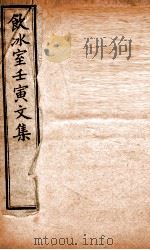 飲冰室壬寅文集
mtoou.info